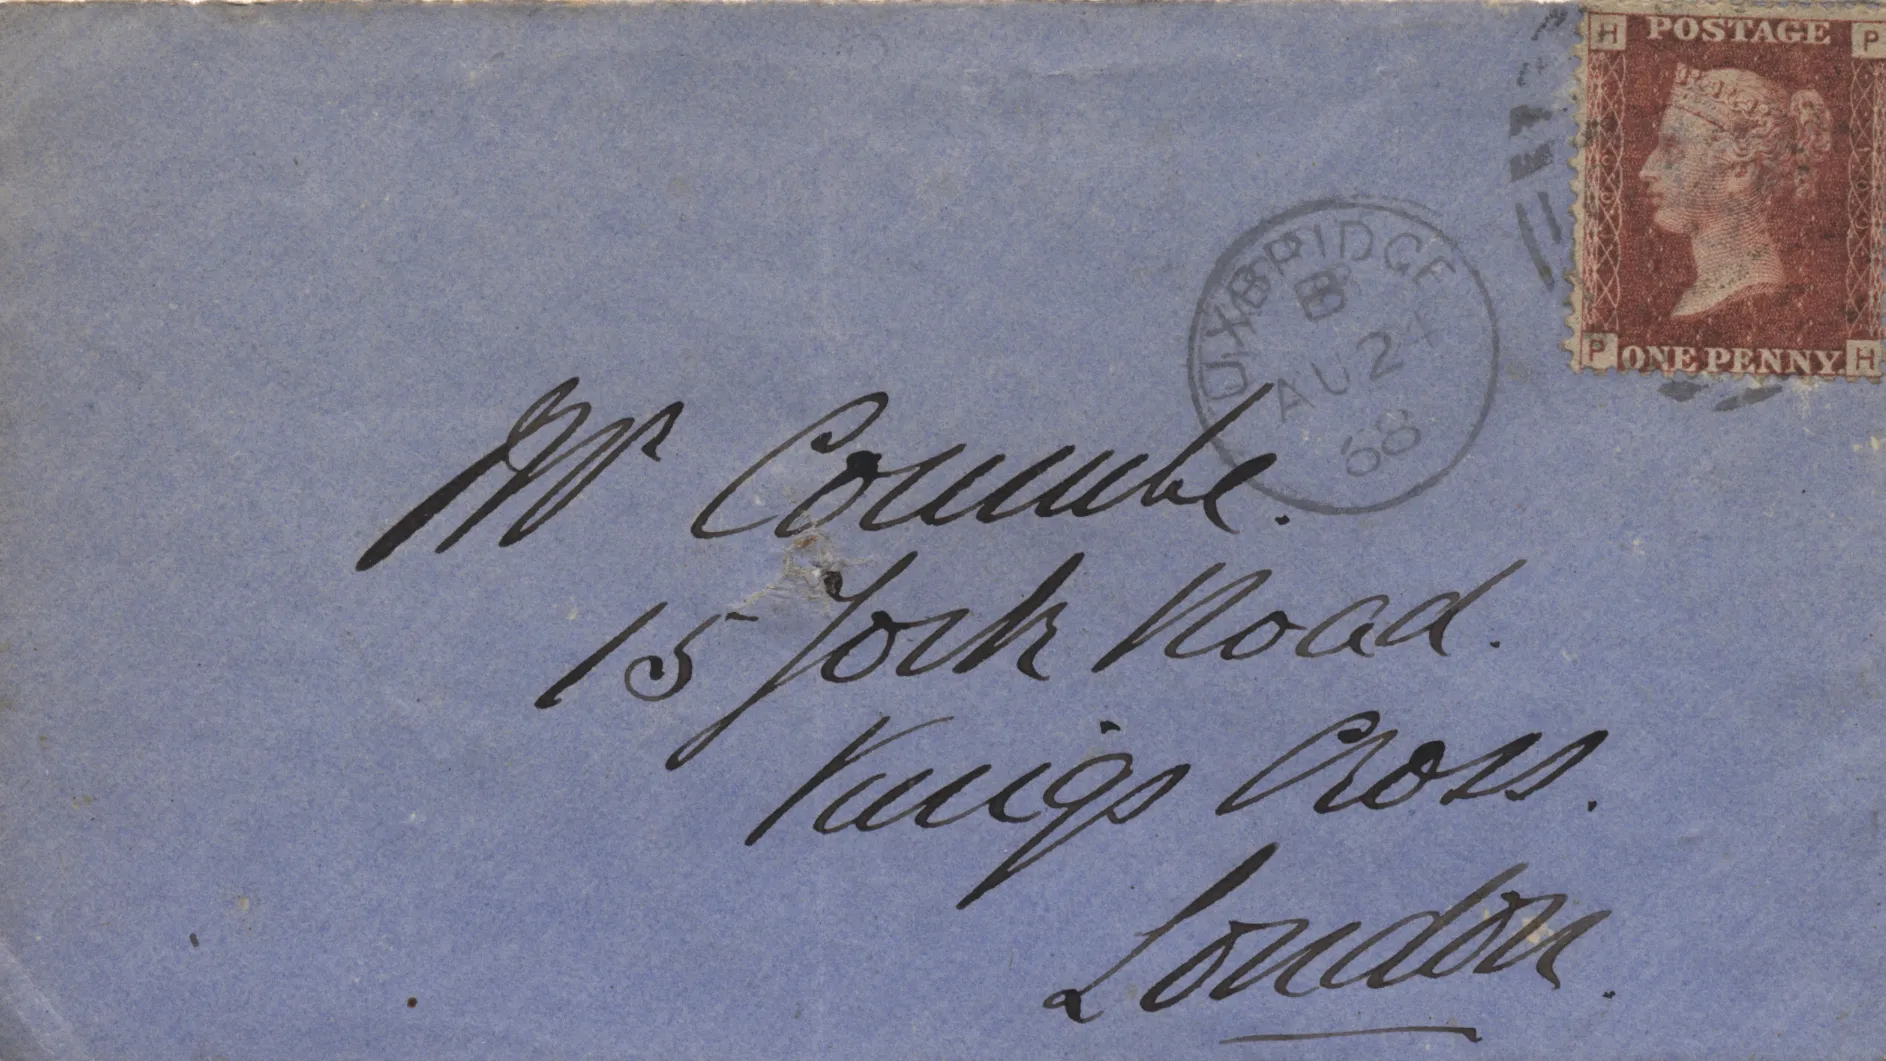 H POSTAGE P
P ONE PENNY H
UXBRIDGE
B
AU 24
68
Mr Coumbe.
15 York Road.
Kings Cross.
London.